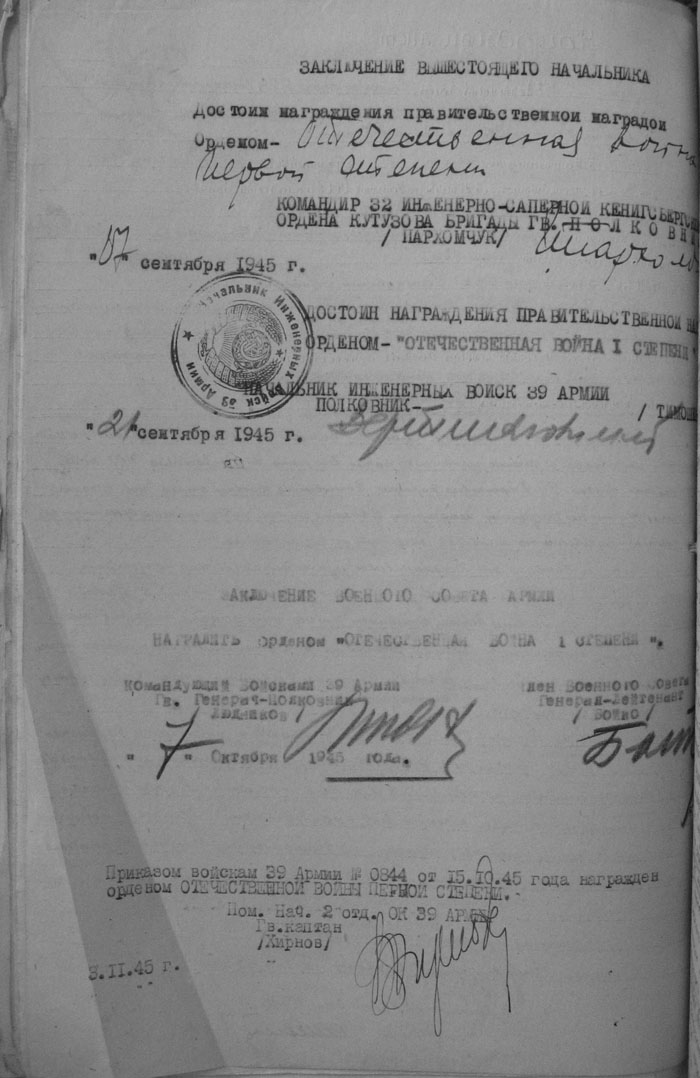 ЗАКЛЮЧЕНИЕ ВЫШЕСТОЯЩЕГО НАЧАЛЬНИКА
Достоин награждения правительственной наградой
Орденом- Отечественная война
первой степени
КОМАНДИР 32 ИНЖЕНЕРНО-САПЕРНОЙ КЕНИГСБЕРГС
ОРДЕНА КУТУЗОВА БРИГАДЫ ГВ. ПОЛКОВН
/ ПАРХОМЧУК/
"17" сентября 1945 г.
Начальник Инженерных Войск 39 Армии
ДОСТОИН НАГРАЖДЕНИЯ ПРАВИТЕЛЬСТВЕННОЙ НА
ОРДЕНОМ- "ОТЕЧЕСТВЕННАЯ ВОЙНА I СТЕПЕНИ"
НАЧАЛЬНИК ИНЖЕНЕРНЫХ ВОЙСК 39 АРМИИ
ПОЛКОВНИК-
"21" сентября 1945 г.
ЗАКЛЮЧЕНИЕ ВОЕННОГО СОВЕТА АРМИИ
НАГРАДИТЬ орденом "ОТЕЧЕСТВЕННАЯ ВОЙНА 1 СТЕПЕНИ ".
Командующий Войсками 39 Армии
Гв. Генерал-Полковник
/ Людников /
Член Военного Совета
Генерал-Лейтенант
/ Бойко /
"7" Октября 1945 года.
Приказом войскам 39 Армии № 0844 от 15.10.45 года награжден
орденом ОТЕЧЕСТВЕННОЙ ВОЙНЫ ПЕРВОЙ СТЕПЕНИ.
Пом. Нач. 2 отд. ОК 39 АРМИИ
Гв.каптан
/Хирнов/
3.II.45 г.